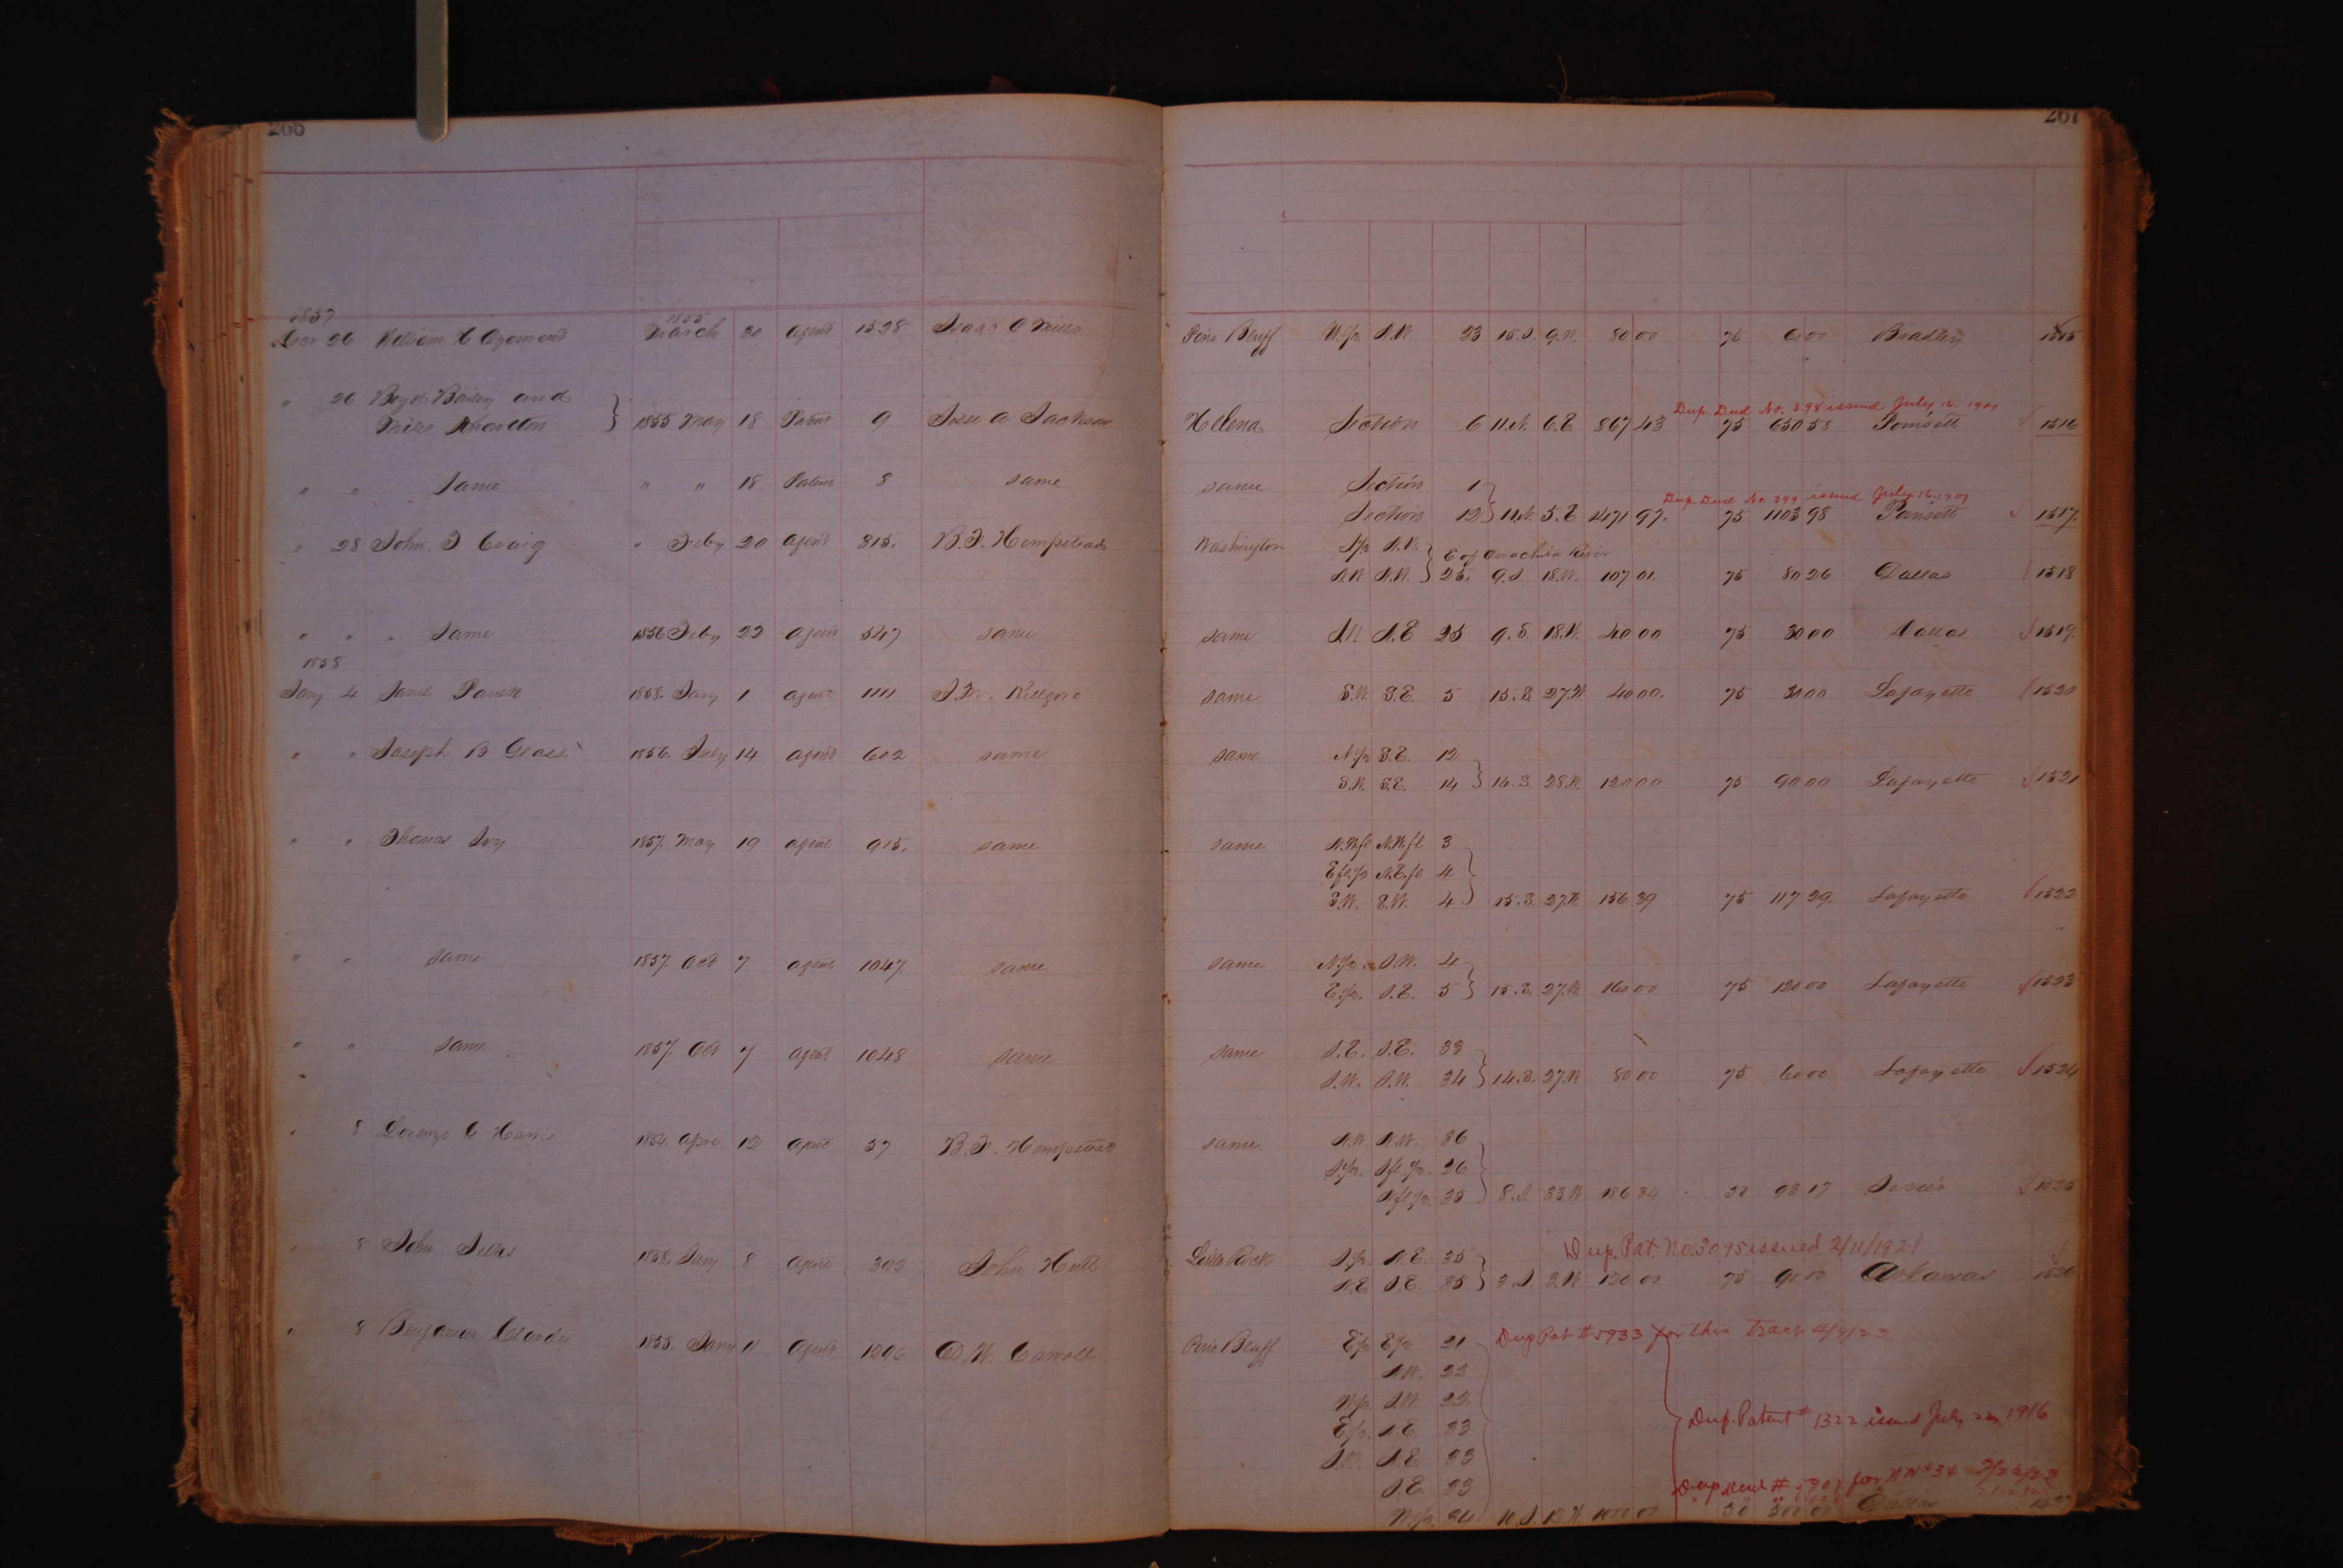 266 267
1857 1855
Decr 26 William C Ozement March 20 agent 1528 Isaac O Mills Pine Bluff W.½ S.W. 23 15.S. 9.W. 80 00 75 60 00 Bradley 1515
" 26 Boyd Bailey and Dup. Deed No. 398 issued July 16, 1907
Miles Knowlton } 1855 May 18 Patent 9 Jesse A Jackson Helena Section 6 11.N. 6.E 867 43 75 650 58 Poinsett 1516
" " Same " " 18 Patent 8 same same Section 1 }
Dup. Deed No. 399 issued July 16, 1907
Section 12 } 11.N. 5.E 1471 97. 75 1103 98 Poinsett 1517
" 28 John. T Craig " Feby 20 agent 315. B.F. Hempstead Washington S½ N.W. } E of Ouachita River
N.W. 25. 9.S. 18.W. 107 01. 75 80 26 Dallas 1518
" " " Same 1856 Feby 22 agent 547 same same S.E 25 9.S. 18.W. 40 00 75 30 00 Dallas 1519.
1858
Jany 4 1858. Jany 1 agent 1111 same S.W. S.E. 5 15.S. 27.W 40 00. 75 30 00 Lafayette 1520
" " Joseph B Glass. 1856. 14 agent 602 same same N.½ S.E. 12 }
S.W. S.E. 14 } 14.S. 28.W. 120 00 75 90 00 Lafayette 1521
" " Thomas Ivy 1857. May 19 agent 915. same same N.W.fl N.W.fl 3 }
E fl.½ N.E.fl 4
S.W. S.W. 4 } 15.S. 27.W. 156 39 75 117 29. Lafayette 1522
" " same 1857. Oct 7 agent 1047 same same N.½ S.W. 4 }
E.½. S.E. 5 } 15.S. 27.W 160 00 75 120 00 Lafayette 1523
" " same 1857. Oct 7 agent 1048 same same S.E. S.E. 33 }
S.W. S.W. 34 } 14.S. 27.W 80 00 75 60 00 Lafayette 1524
" 8 Lorenzo G Harris 1854. 12 57 B.F. Hempstead same N.W. 36 }
S.½. S fl.½. 26
N fl.½. 35 } 8.S. 33.W 186 34 50 98 17 Sevier 1525
" 8 John Selks 1858. Jany 8 303 John Hutt Little Rock S.½. N.E. 35 } Dup. Pat. No. 3095 issued 2/11/1921
N.E S.E 35 } 3.S. 3.W 120 00 75 90 00 Arkansas 1526
" 8 Benjamin Clardy 1855. Jany agent 1296 D.W. Carroll Pine Bluff E½ E½ 21 } Dup Pat # 5933 for this Tract 4/9/23
22
W½. S.W. 22.
E½. N.E. 33 Dup. Patent # 1322 issued July 1916
N.E 33
S.E. 33
W.½. 34 50 500 00 Dallas